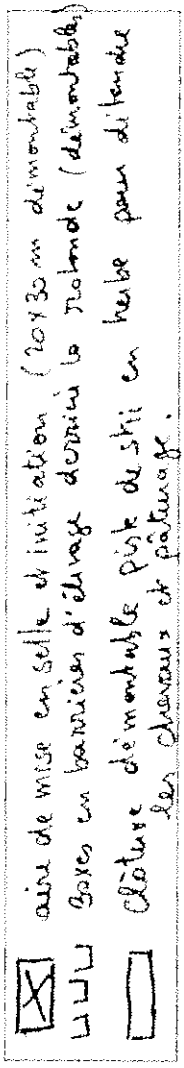 aire de mise en selle et initiation (20x30 m démontable)
Boxes en barrières d'élevage derrière la rotonde (démontables)
Clôture démontable piste de ski en herbe pour détendre
les chevaux et pâturage.